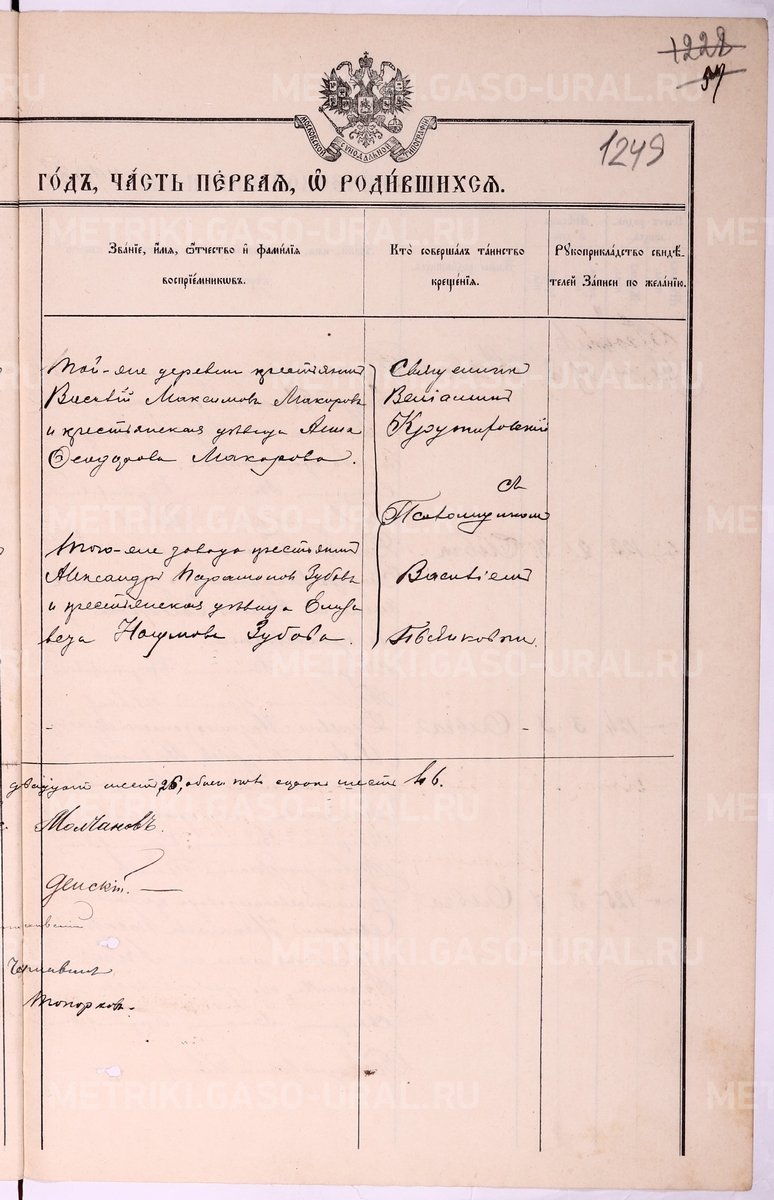 1228
57
1249
МОСКОВСКОЙ СѴНОДАЛЬНОЙ ТИПОГРАФІИ
ГО́ДЪ, ЧА́СТЬ ПЕ́РВАЯ, Ѽ РОДИ́ВШИХСЯ.
Зва́ніе, и҆́мя, ѻ҆́тчество и҆ фами́лія
воспріе́мниковъ.
Кто̀ соверша́лъ та́инство
креще́нія.
Рꙋкоприкла́дство свидѣ́-
телей За́писи по жела́нію.
Той-же деревни крестьянинъ
Василій Максимовъ Макаровъ
и крестьянская дѣвица Анна
Ѳеодорова Макарова.
Священникъ
Веніаминъ
съ
Псаломщикомъ
Того-же завода крестьянинъ
Александръ Парамоновъ Зубовъ
и крестьянская дѣвица Елиза
вета Наумова Зубова.
Василіемъ
двадцать шесть 26, обоего пола сорокъ шесть 46.
Молчановъ.
Топорковъ.
METRIKI.GASO-URAL.RU